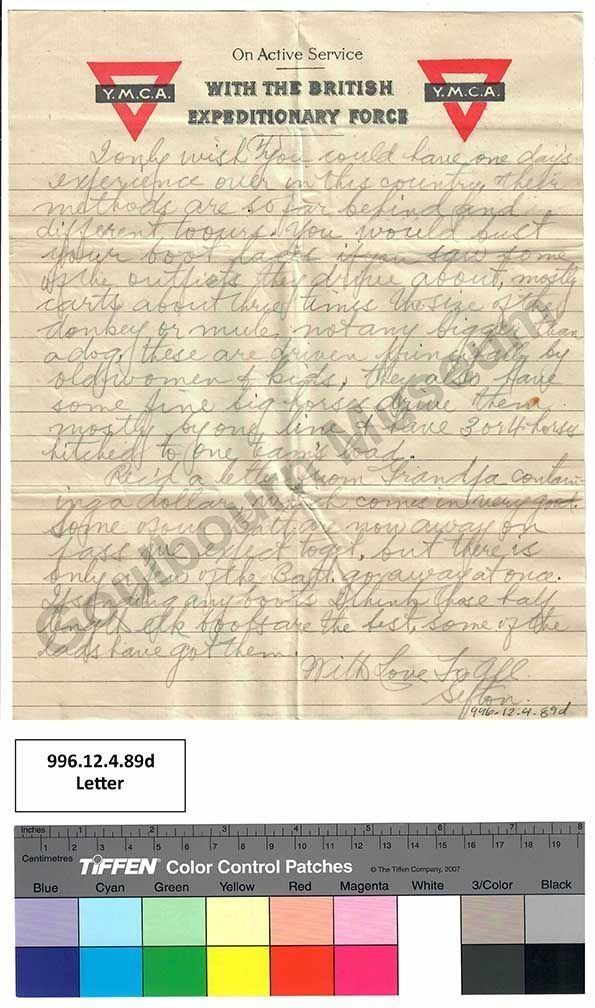 On Active Service
WITH THE BRITISH
EXPEDITIONARY FORCE
Y.M.C.A.
Y.M.C.A.
I only wish you could have one day's
experience over in this country their
methods are so far behind and
different to ours. You would bust
your boot laces if you saw some
of the outfits they drive about, mostly
carts about three times the size of the
donkey or mule, not any bigger than
a dog, these are driven principally by
old women & kids, they also have
some fine big horses drive them
mostly by one line & have 3 or 4 horses
hitched to one team's load.
Rec'd a letter from Grandpa contain-
ing a dollar, comes in very good.
Some of our Batt are now away on
pass we expect to get, but there is
only a few of the Batt. go away at once.
If sending any boots I think those half
length elk boots are the best, some of the
lads have got them.
With Love To All
Sefton.
996-12.4.89d
Coulbourn Museum
996.12.4.89d
Letter
Inches 1 2 3 4 5 6 7 8
1 2 3 4 5 6 7 8 9 10 11 12 13 14 15 16 17 18 19
Centimetres
TIFFEN Color Control Patches © The Tiffen Company, 2007
Blue Cyan Green Yellow Red Magenta White 3/Color Black